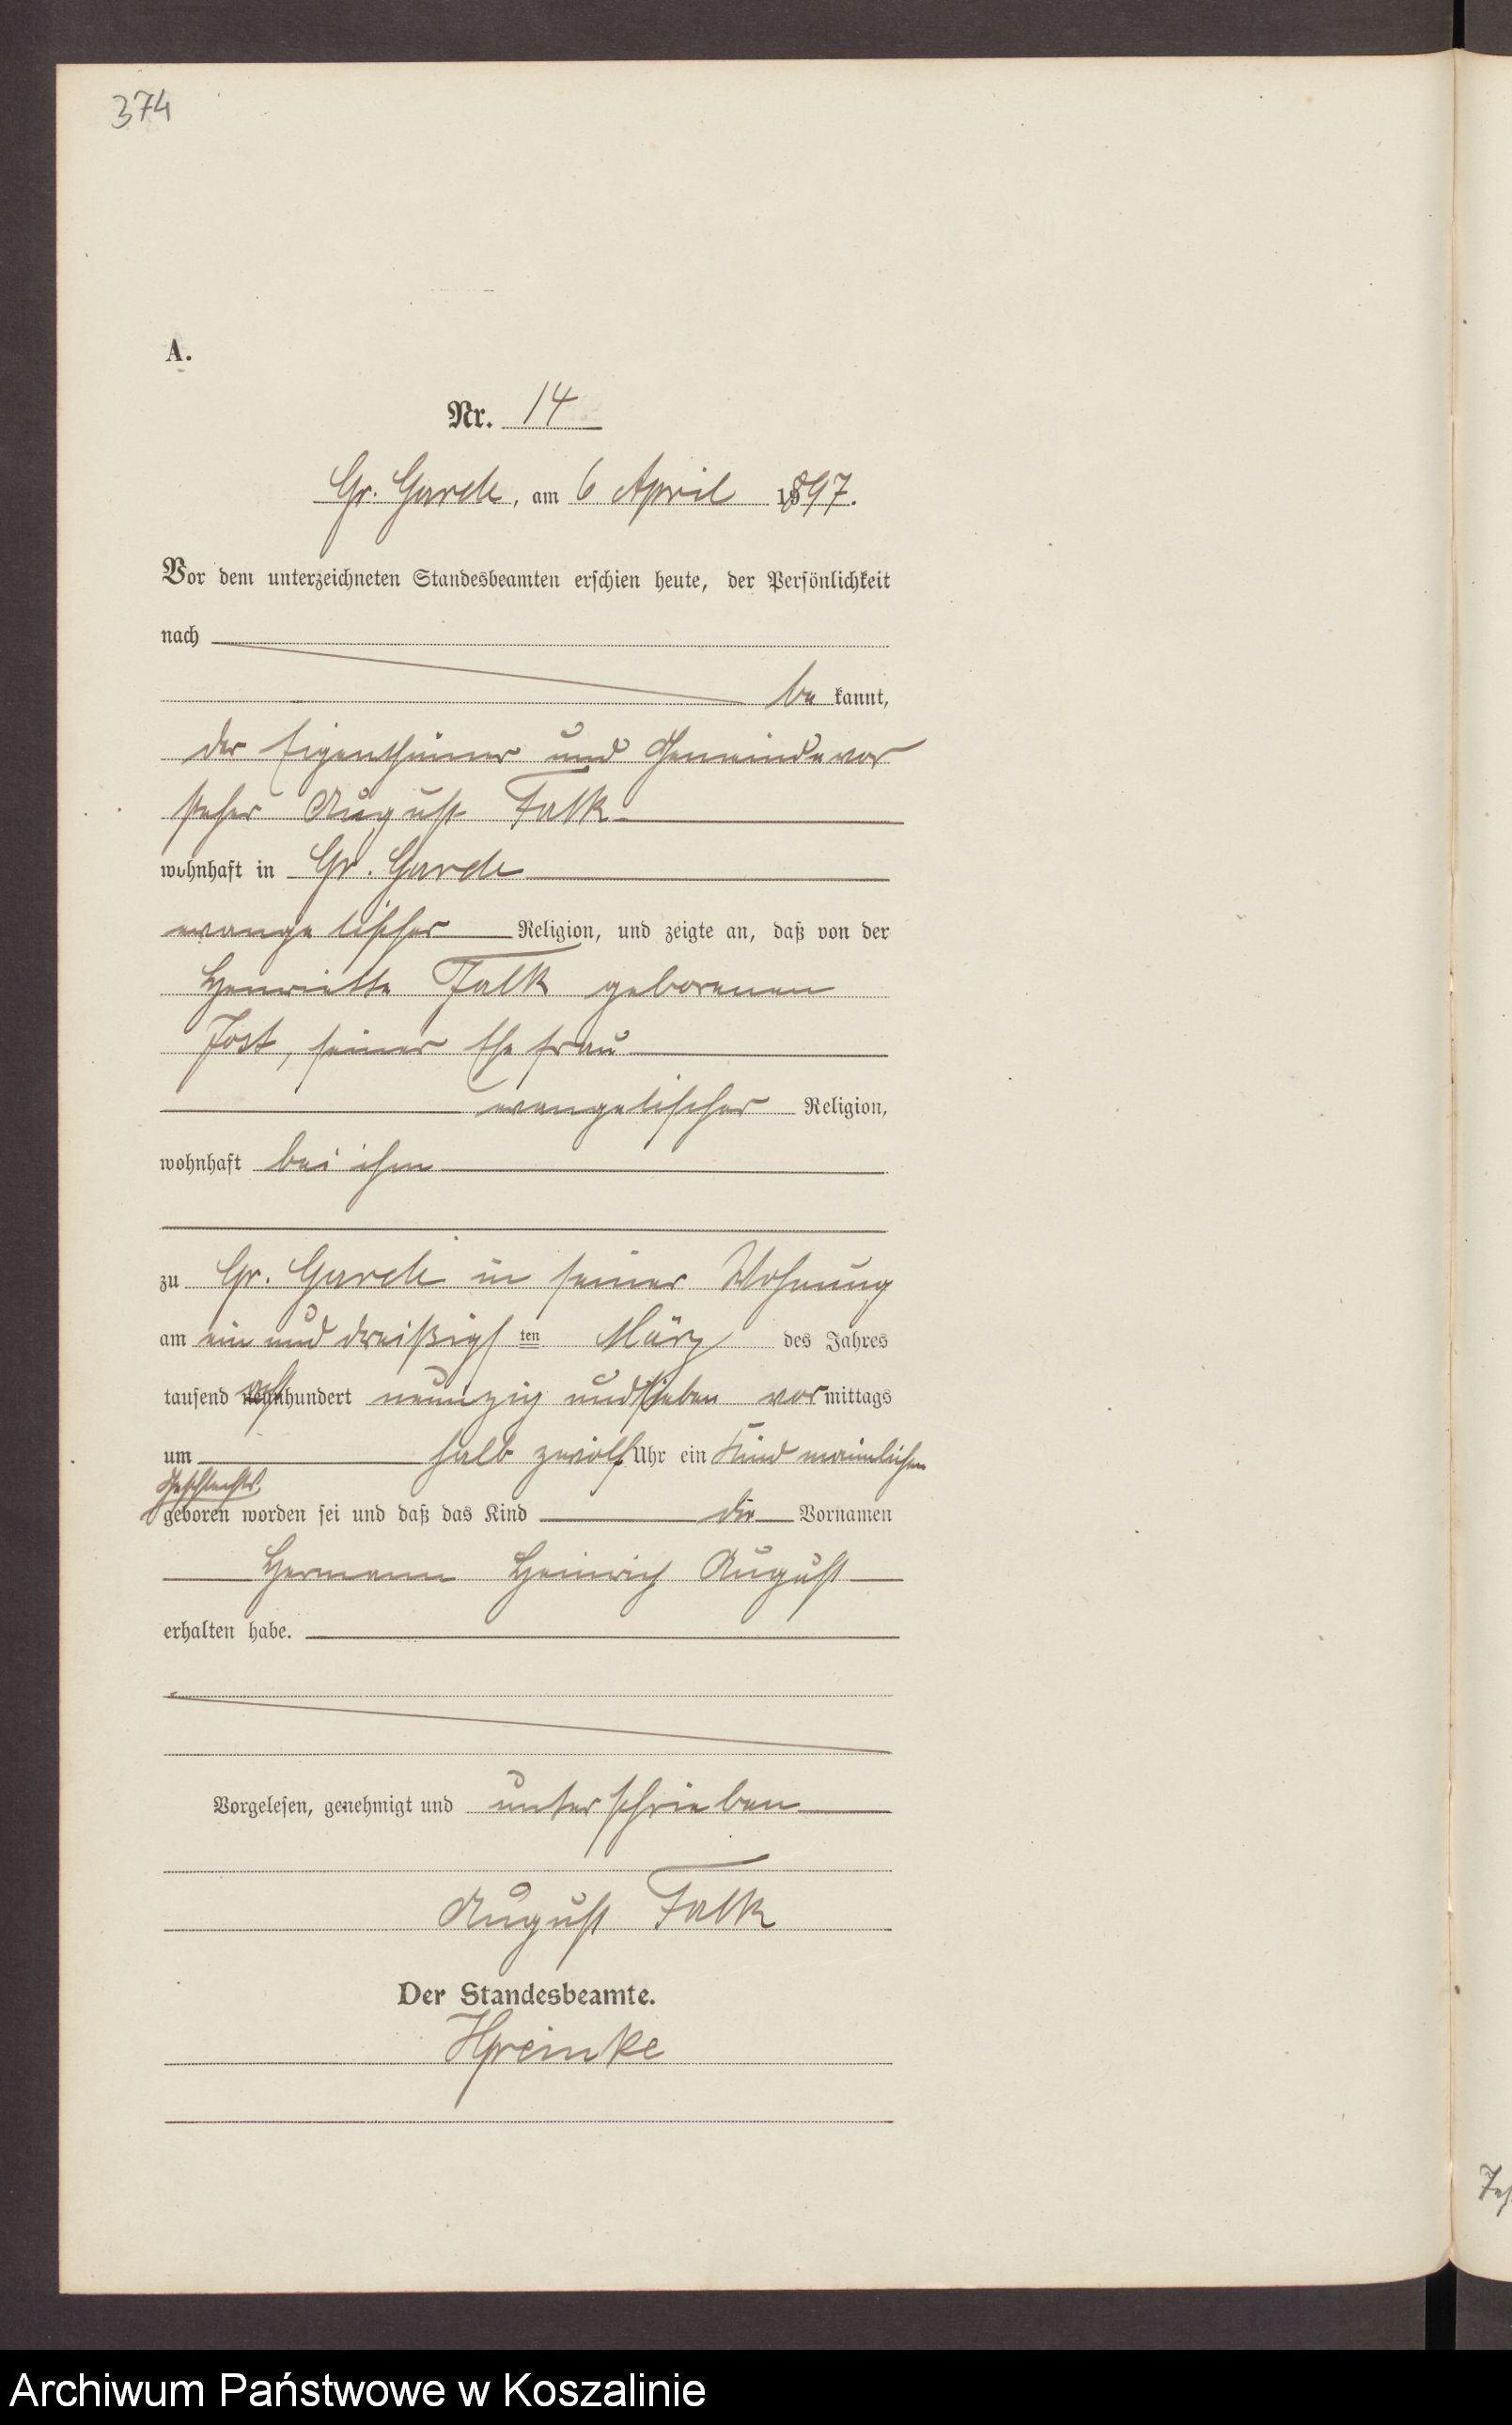 374
A.
Nr. 14
Gr. Garde, am 6 April 1897.
Vor dem unterzeichneten Standesbeamten erschien heute, der Persönlichkeit
nach
be kannt,
der Eigenthümer und Gemeindevor
steher August Falk
wohnhaft in Gr. Garde
evangelischer Religion, und zeigte an, daß von der
Henriette Falk geborenen
Jost, seiner Ehefrau
evangelischer Religion,
wohnhaft bei ihm
zu Gr. Garde in seiner Wohnung
am ein und dreißigs ten März des Jahres
tausend acht hundert neunzig und sieben vor mittags
um halb zwölf Uhr ein Kind männlichen
Geschlechts
geboren worden sei und daß das Kind die Vornamen
Hermann Heinrich August
erhalten habe.
Vorgelesen, genehmigt und unterschrieben
August Falk
Der Standesbeamte.
Archiwum Państwowe w Koszalinie